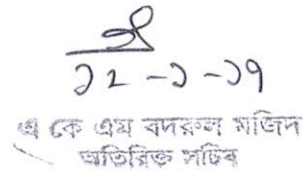 ১২-১-১৭
এ কে এম বদরুল মজিদ
অতিরিক্ত সচিব